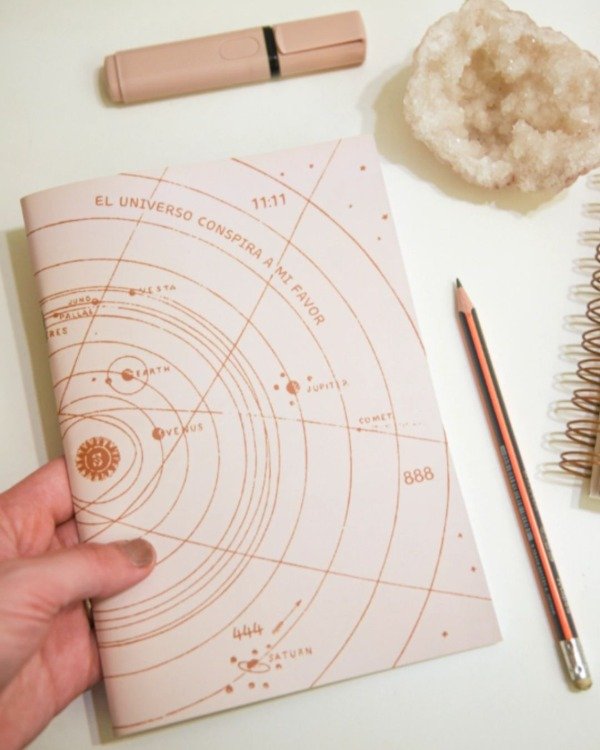 EL UNIVERSO CONSPIRA A MI FAVOR
11:11
VESTA
JUNO
PALLAS
ERES
EARTH
JUPITER
COMET
VENUS
888
444
SATURN